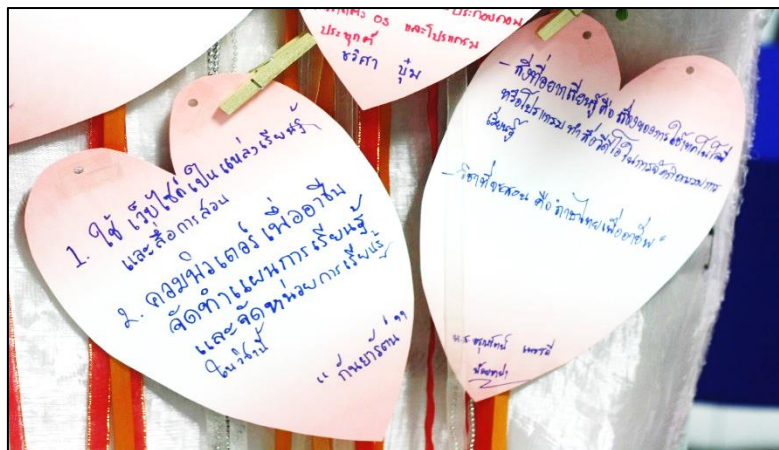 และโปรแกรม
ประยุกต์
ชวิศา ปุ๋ม
1. ใช้ เว็บไซต์เป็น แหล่งเรียนรู้
และสื่อการสอน
2. คอมพิวเตอร์เพื่ออาชีพ
จัดทำแผนการเรียนรู้
และจัดหน่วยการเรียนรู้
ในวิชานี้
"กันยารัตน์"
- สิ่งที่อยากเรียนรู้ คือ เรื่องของการใช้เทคโนโลยี
หรือโปรแกรม ทำสื่อวีดีโอในการจัดกระบวนการ
เรียนรู้
- วิชาที่จะสอน คือ ภาษาไทยเพื่ออาชีพ
น.ส.